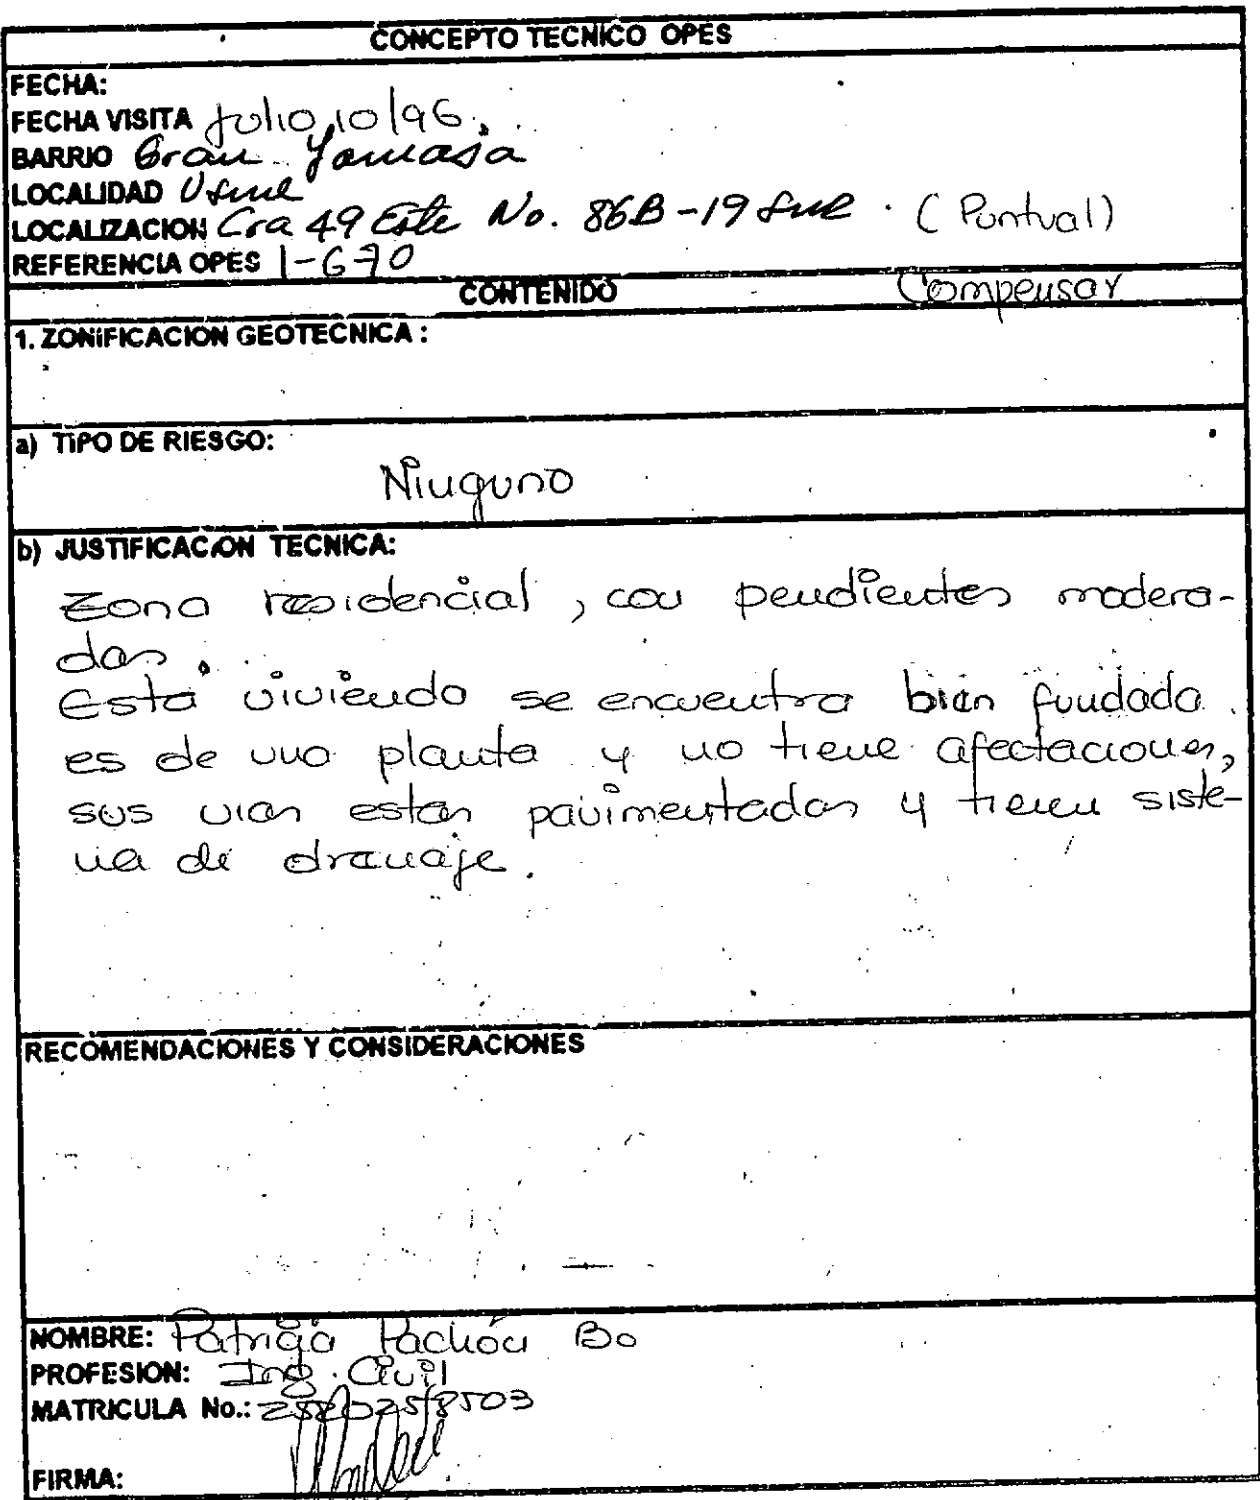 CONCEPTO TECNICO OPES
FECHA:
FECHA VISITA Julio 10/96.
BARRIO Gran Yomasa
LOCALIDAD Usme
LOCALIZACION Cra 49 Este No. 86B-19 Sur. (Puntual)
REFERENCIA OPES 1-670
CONTENIDO Compensar
1. ZONIFICACION GEOTECNICA :
a) TIPO DE RIESGO:
Ninguno
b) JUSTIFICACION TECNICA:
Zona residencial, con pendientes modera-
das.
Esta vivienda se encuentra bien fundada.
es de una planta y no tiene afectaciones,
sus vias estan pavimentadas y tienen siste-
ma de drenaje.
RECOMENDACIONES Y CONSIDERACIONES
NOMBRE: Patricia Pachón Bo
PROFESION: Ing. Civil
MATRICULA No.:
FIRMA: